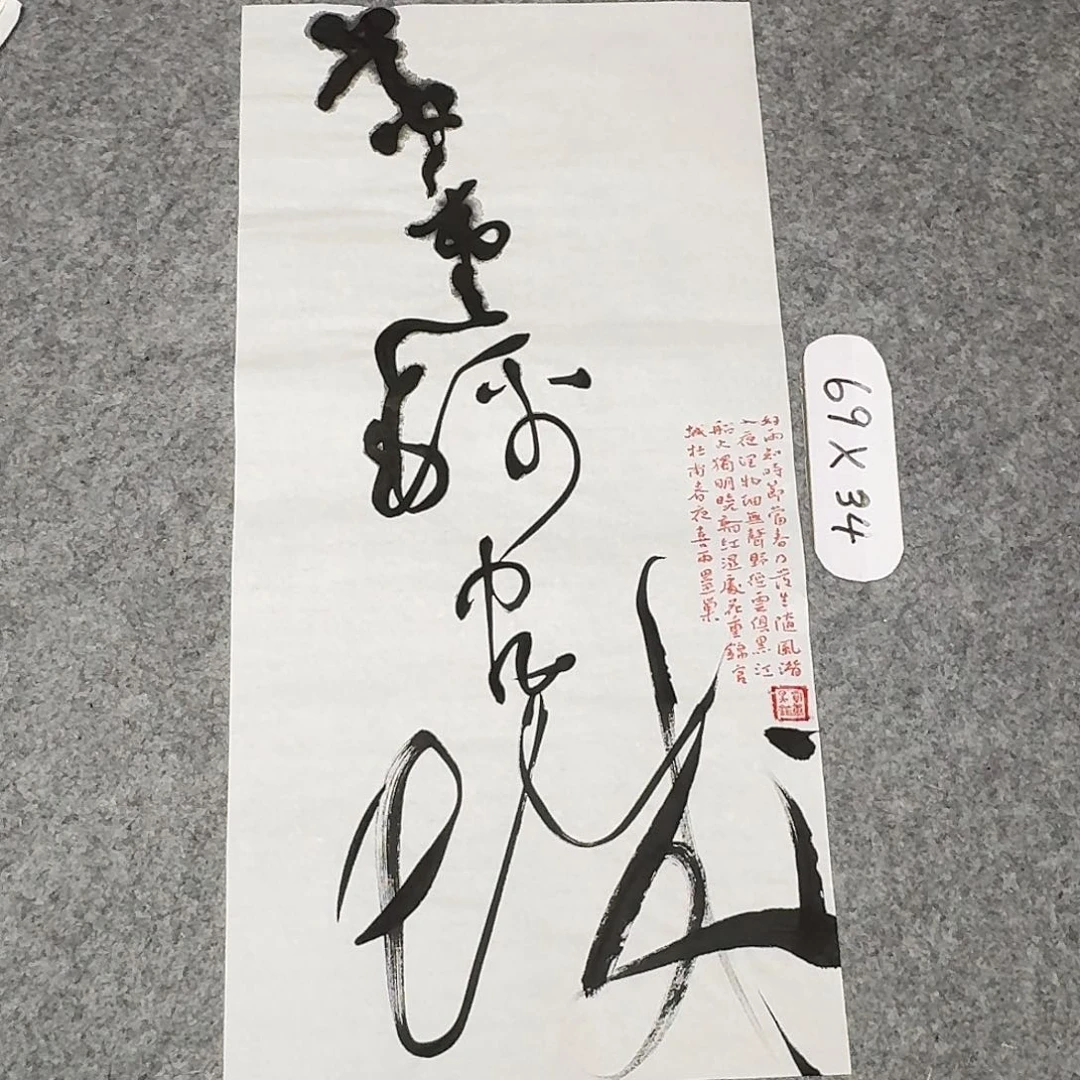 花重錦官城
好雨知時節當春乃發生隨風潛
入夜潤物細無聲野徑雲俱黑江
船火獨明曉看紅濕處花重錦官
城杜甫春夜喜雨墨巢
69X34